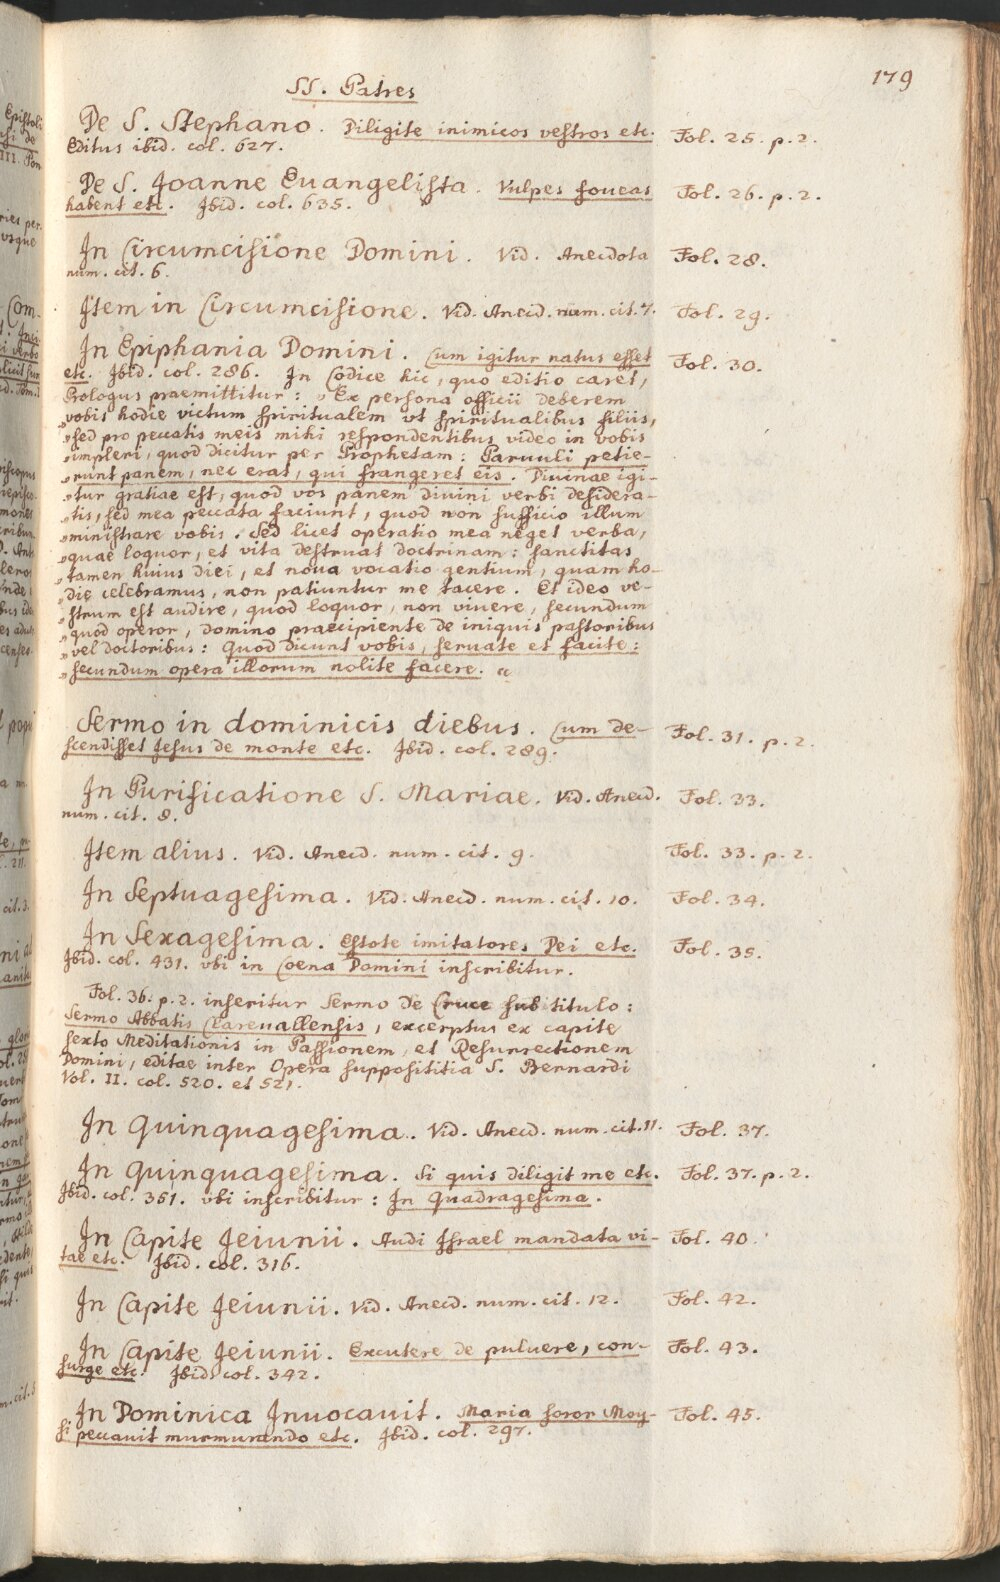 179
SS. Patres
De S. Stephano. Diligite inimicos vestros etc. Fol. 25. p. 2.
Editus ibid. col. 627.
De S. Joanne Euangelista. Vulpes foueas Fol. 26. p. 2.
habent etc. Ibid. col. 635.
In Circumcisione Domini. Vid. Anecdota Fol. 28.
num. cit. 6.
Item in Circumcisione. Vid. Anecd. num. cit. 7. Fol. 29.
In Epiphania Domini. Cum igitur natus esset Fol. 30.
etc. Ibid. col. 286. In Codice hic, quo editio caret,
Prologus praemittitur: „Ex persona officii deberem
„vobis hodie victum spiritualem vt spiritualibus filiis,
„sed pro peccatis meis mihi respondentibus video in vobis
„impleri, quod dicitur per Prophetam: Paruuli petie-
„runt panem, nec erat, qui frangeret eis. Diuinae igi-
„tur gratiae est, quod vos panem diuini verbi desidera-
„tis, sed mea peccata faciunt, quod non sufficio illum
„ministrare vobis. Sed licet operatio mea neget verba,
„quae loquor, et vita destruat doctrinam: sanctitas
„tamen huius diei, et noua vocatio gentium, quam ho-
„die celebramus, non patiuntur me tacere. Et ideo ve-
„strum est audire, quod loquor, non viuere, secundum
„quod operor, domino praecipiente de iniquis pastoribus
„vel doctoribus: Quod dicunt vobis, seruate et facite:
„secundum opera illorum nolite facere. “
Sermo in dominicis diebus. Cum de- Fol. 31. p. 2.
scendisset Jesus de monte etc. Ibid. col. 289.
In Purificatione S. Mariae. Vid. Anecd. Fol. 33.
num. cit. 8.
Item alius. Vid. Anecd. num. cit. 9. Fol. 33. p. 2.
In Septuagesima. Vid. Anecd. num. cit. 10. Fol. 34.
In Sexagesima. Estote imitatores Dei etc. Fol. 35.
Ibid. col. 431. vbi in Coena Domini inscribitur.
Fol. 36. p. 2. inseritur Sermo de Cruce sub titulo:
Sermo Abbatis Clareuallensis, excerptus ex capite
sexto Meditationis in Passionem, et Resurrectionem
Domini, editae inter Opera supposititia S. Bernardi
Vol. II. col. 520. et 521.
In Quinquagesima. Vid. Anecd. num. cit. 11. Fol. 37.
In Quinquagesima. Si quis diligit me etc. Fol. 37. p. 2.
Ibid. col. 351. vbi inscribitur: In Quadragesima.
In Capite Jeiunii. Audi Israel mandata vi- Fol. 40.
tae etc. Ibid. col. 316.
In Capite Jeiunii. Vid. Anecd. num. cit. 12. Fol. 42.
In Capite Jeiunii. Excutere de puluere, con- Fol. 43.
surge etc. Ibid. col. 342.
In Dominica Inuocauit. Maria soror Moy- Fol. 45.
si peccauit murmurando etc. Ibid. col. 297.